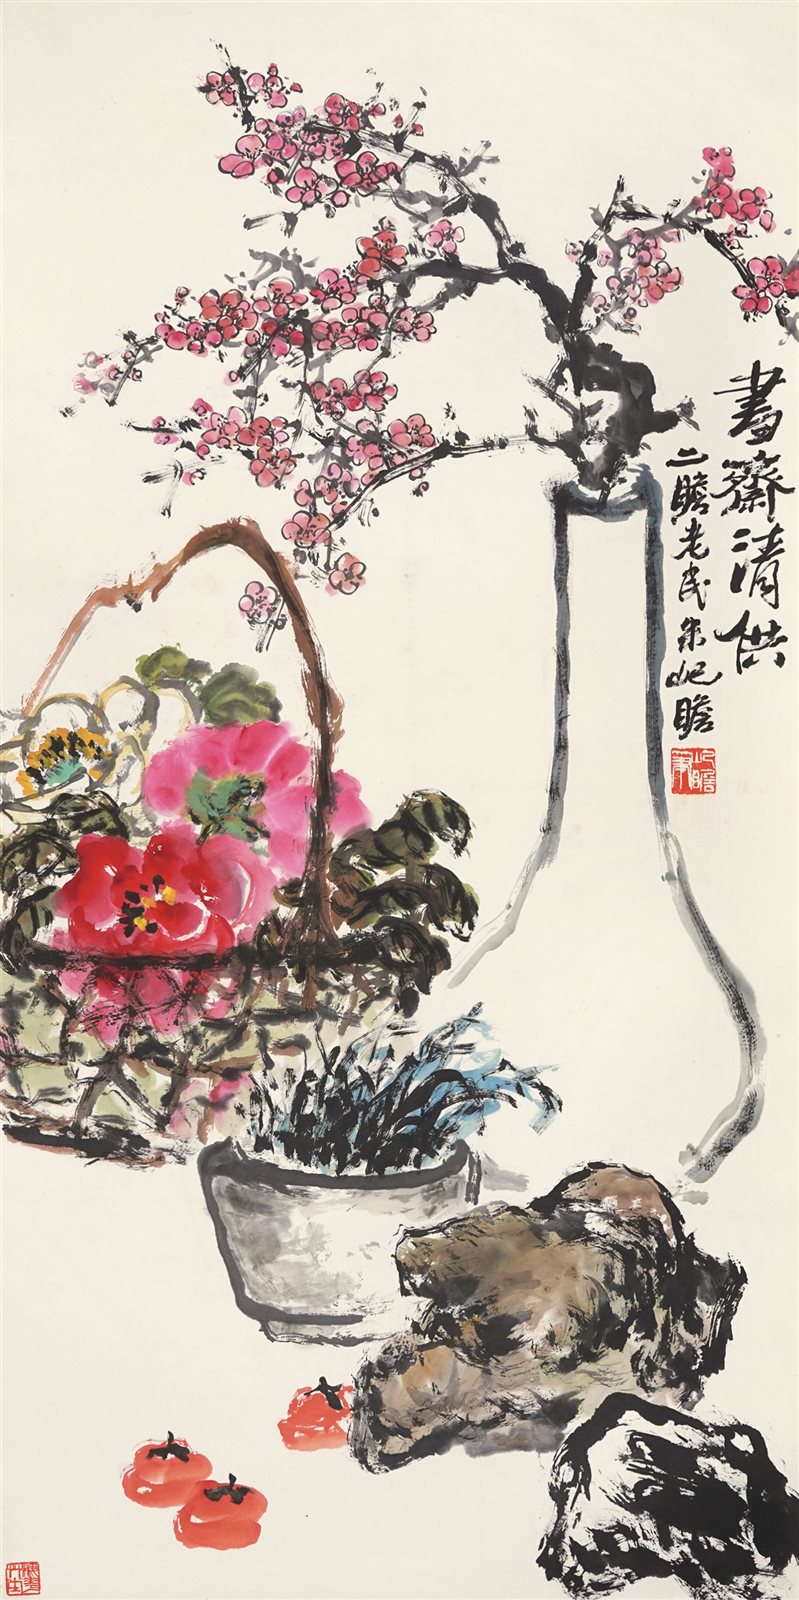 書齋清供
二瞻老民朱屺瞻